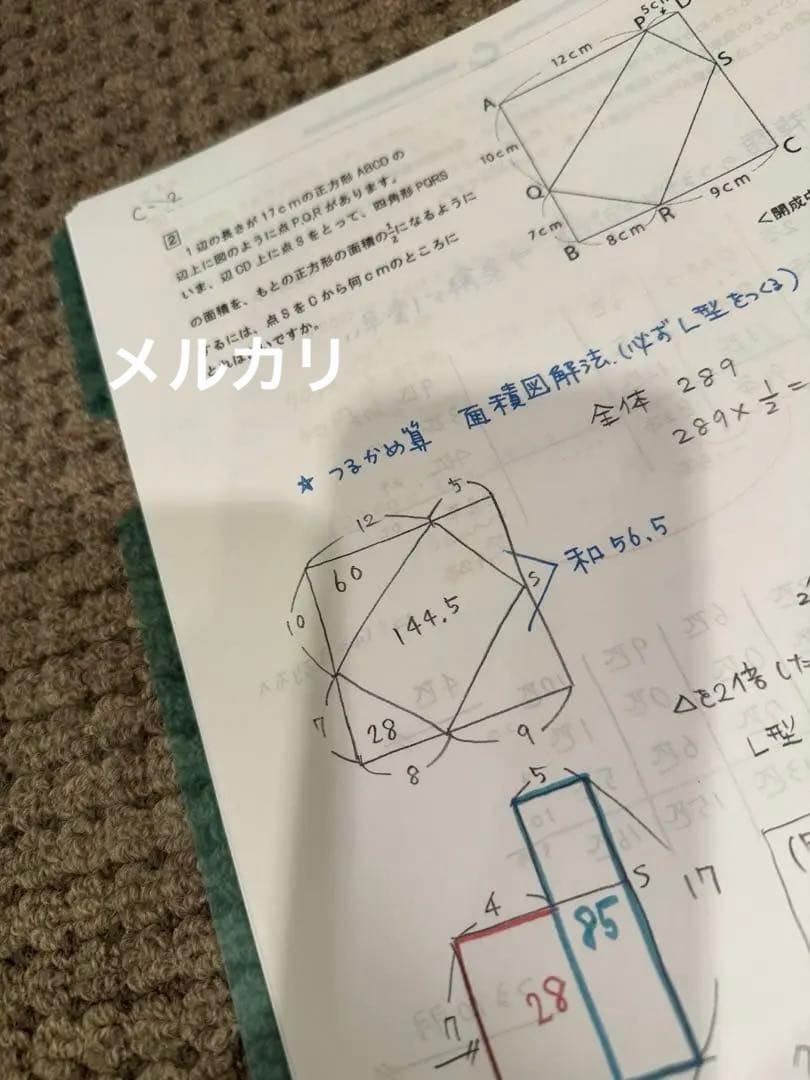 C-2
2
1辺の長さが17cmの正方形ABCDの
辺上に図のように点P,Q,Rがあります。
いま、辺CD上に点Sをとって、四角形PQRS
の面積を、もとの正方形の面積の1/2になるように
するには、点SをCから何cmのところに
とればよいですか。
メルカリ
P 5cm D
12cm
A
S
10cm
C
Q
9cm
7cm
R
B 8cm
<開成中
☆ つるかめ算 面積図解法.(必ずL型をつくる)
全体 289
289×1/2=
12 5
60
和56.5
10
144.5
S
7
28
8
9
△を2倍した
L型
5
17
S
4
85
28
7